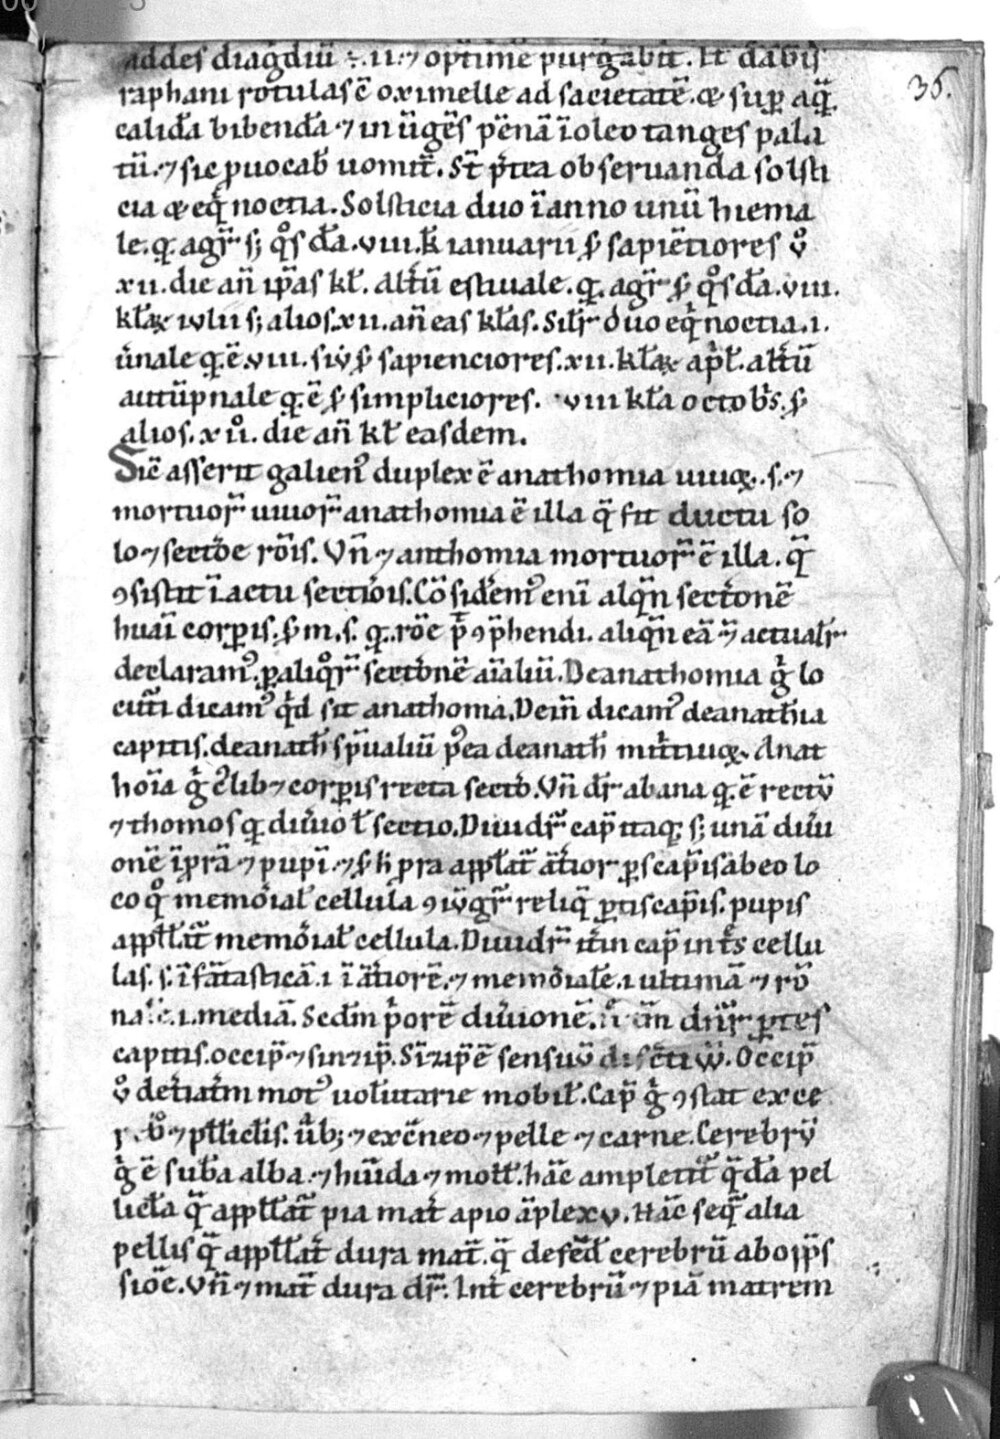 36.
addes diag̃diũ ÷ .ii. ⁊ optime purgabit. It̃ dabis
raphani rotulas c̃ oximelle ad sacietatẽ. & suꝑ aq̃
calida bibenda ⁊ in ũgẽs pẽnã ĩ oleo tanges pala
tũ. ⁊ sic ꝓuocab̃ uomit̃. St̃ p̃tea obseruanda solsti
cia & eq̇noctia. Solsticia duo ĩ anno unũ hiema
le. q. agr̃ s; q̊sda. viii. k̃ ianuarii s̃ sapiẽtiores v̊
xii. die añ ip̃as kł. Alt̃ũ estiuale. q. agr̃ s̃ q̊sda. viii.
kłaꝝ iulii s; alios. xii. añ eas kłas. Silr̃ duo eq̇noctia. i.
ũnale q. ẽ. viii. s̃ sapienciores. xii. kłaꝝ apł. alt̃ũ
autũpnale q. ẽ s̃ simpliciores. viii kła octob̃s. s̃
alios. xii̊. die añ kł easdem.
Sic asserit galien᷒ duplex ẽ anathomia uiuoꝝ. s. ⁊
mortuoꝝ uiuoꝝ anathomia ẽ illa q̃ fit ductu so
lo ⁊ sectõe rõis. Vñ ⁊ anthomia mortuoꝝ ẽ illa. q̃
ꝯsistit ĩ actu sectiõis. Cõsiderem᷒ eni alqñ sectionẽ
huãi corꝑis. aliqñ eã ⁊ actualr̃
declaram᷒. ꝑ aliq̊ꝝ sectionẽ aĩaliũ. De anathomia g̊ lo
cuti dicam᷒ q̇d sit anathomia. Dein dicam᷒ de anath̃ia
capitis. de anath̃ sp̃ualiũ p᷒ea de anath̃ nut̃tiuoꝝ. Anat
hoĩa g̊ ẽ lib̃ ⁊ corꝑis recta sectio. Vñ dr̃ ab ana q. ẽ rectũ
⁊ thomos q. diuio ł sectio. Diuidr̃ cap̃ itaq; s; unã diui
onẽ ĩ prã ⁊ pupĩ. ⁊ s̃ h̃ pra appłat̃ ãtior ꝑs capĩs ab eo lo
co q̊ memoriał cellula ꝯiũgr̃ reliq̃ ꝑtis capĩs. pupis
appłat̃ memoriał cellula. Diuidr̃ it̃m cap̃ in t̃s cellu
las. s. ĩ fãtasticã. i. ĩ ãtiorẽ. ⁊ memoriałe. i. ultimã ⁊ rõ
nałe. i. mediã. Sedm p̃orẽ diuionẽ. dñr̃ ꝑtes
capitis. occip̃ ⁊ sincip̃. Sĩcip̃ ẽ sensuũ Occip̃
v̊ motᷣ uolũtarie mobił. Cap̃ g̊ ꝯstat ex ce
⁊ płliclis. ũb; ⁊ ex cñeo ⁊ pelle ⁊ carne. Cerebrũ
g̊ ẽ suba alba. ⁊ hũida ⁊ mołł. hãc amplectit̃ q̃da pel
licła q̃ appłat̃ pia mat̃ a pio ãplexu. Hãc seq̃ alia
pellis q̃ appłat̃ dura mat̃. q̃ defẽd̃ cerebrũ ab op̃s
siõe. Vñ ⁊ mat̃ dura dr̃. Int̃ cerebrũ ⁊ piã matrem